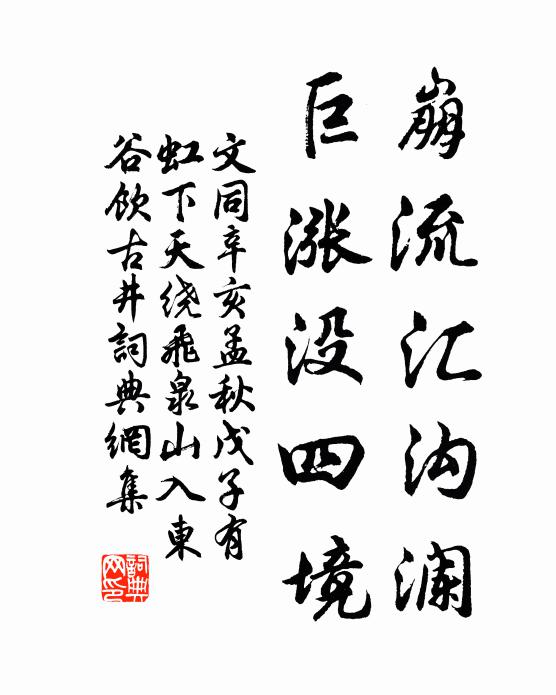 崩流汇沟澜
巨涨没四境
文同辛亥孟秋戊子有
虹下天绕飛泉山入東
谷飲古井詞典網集
詞典
网印